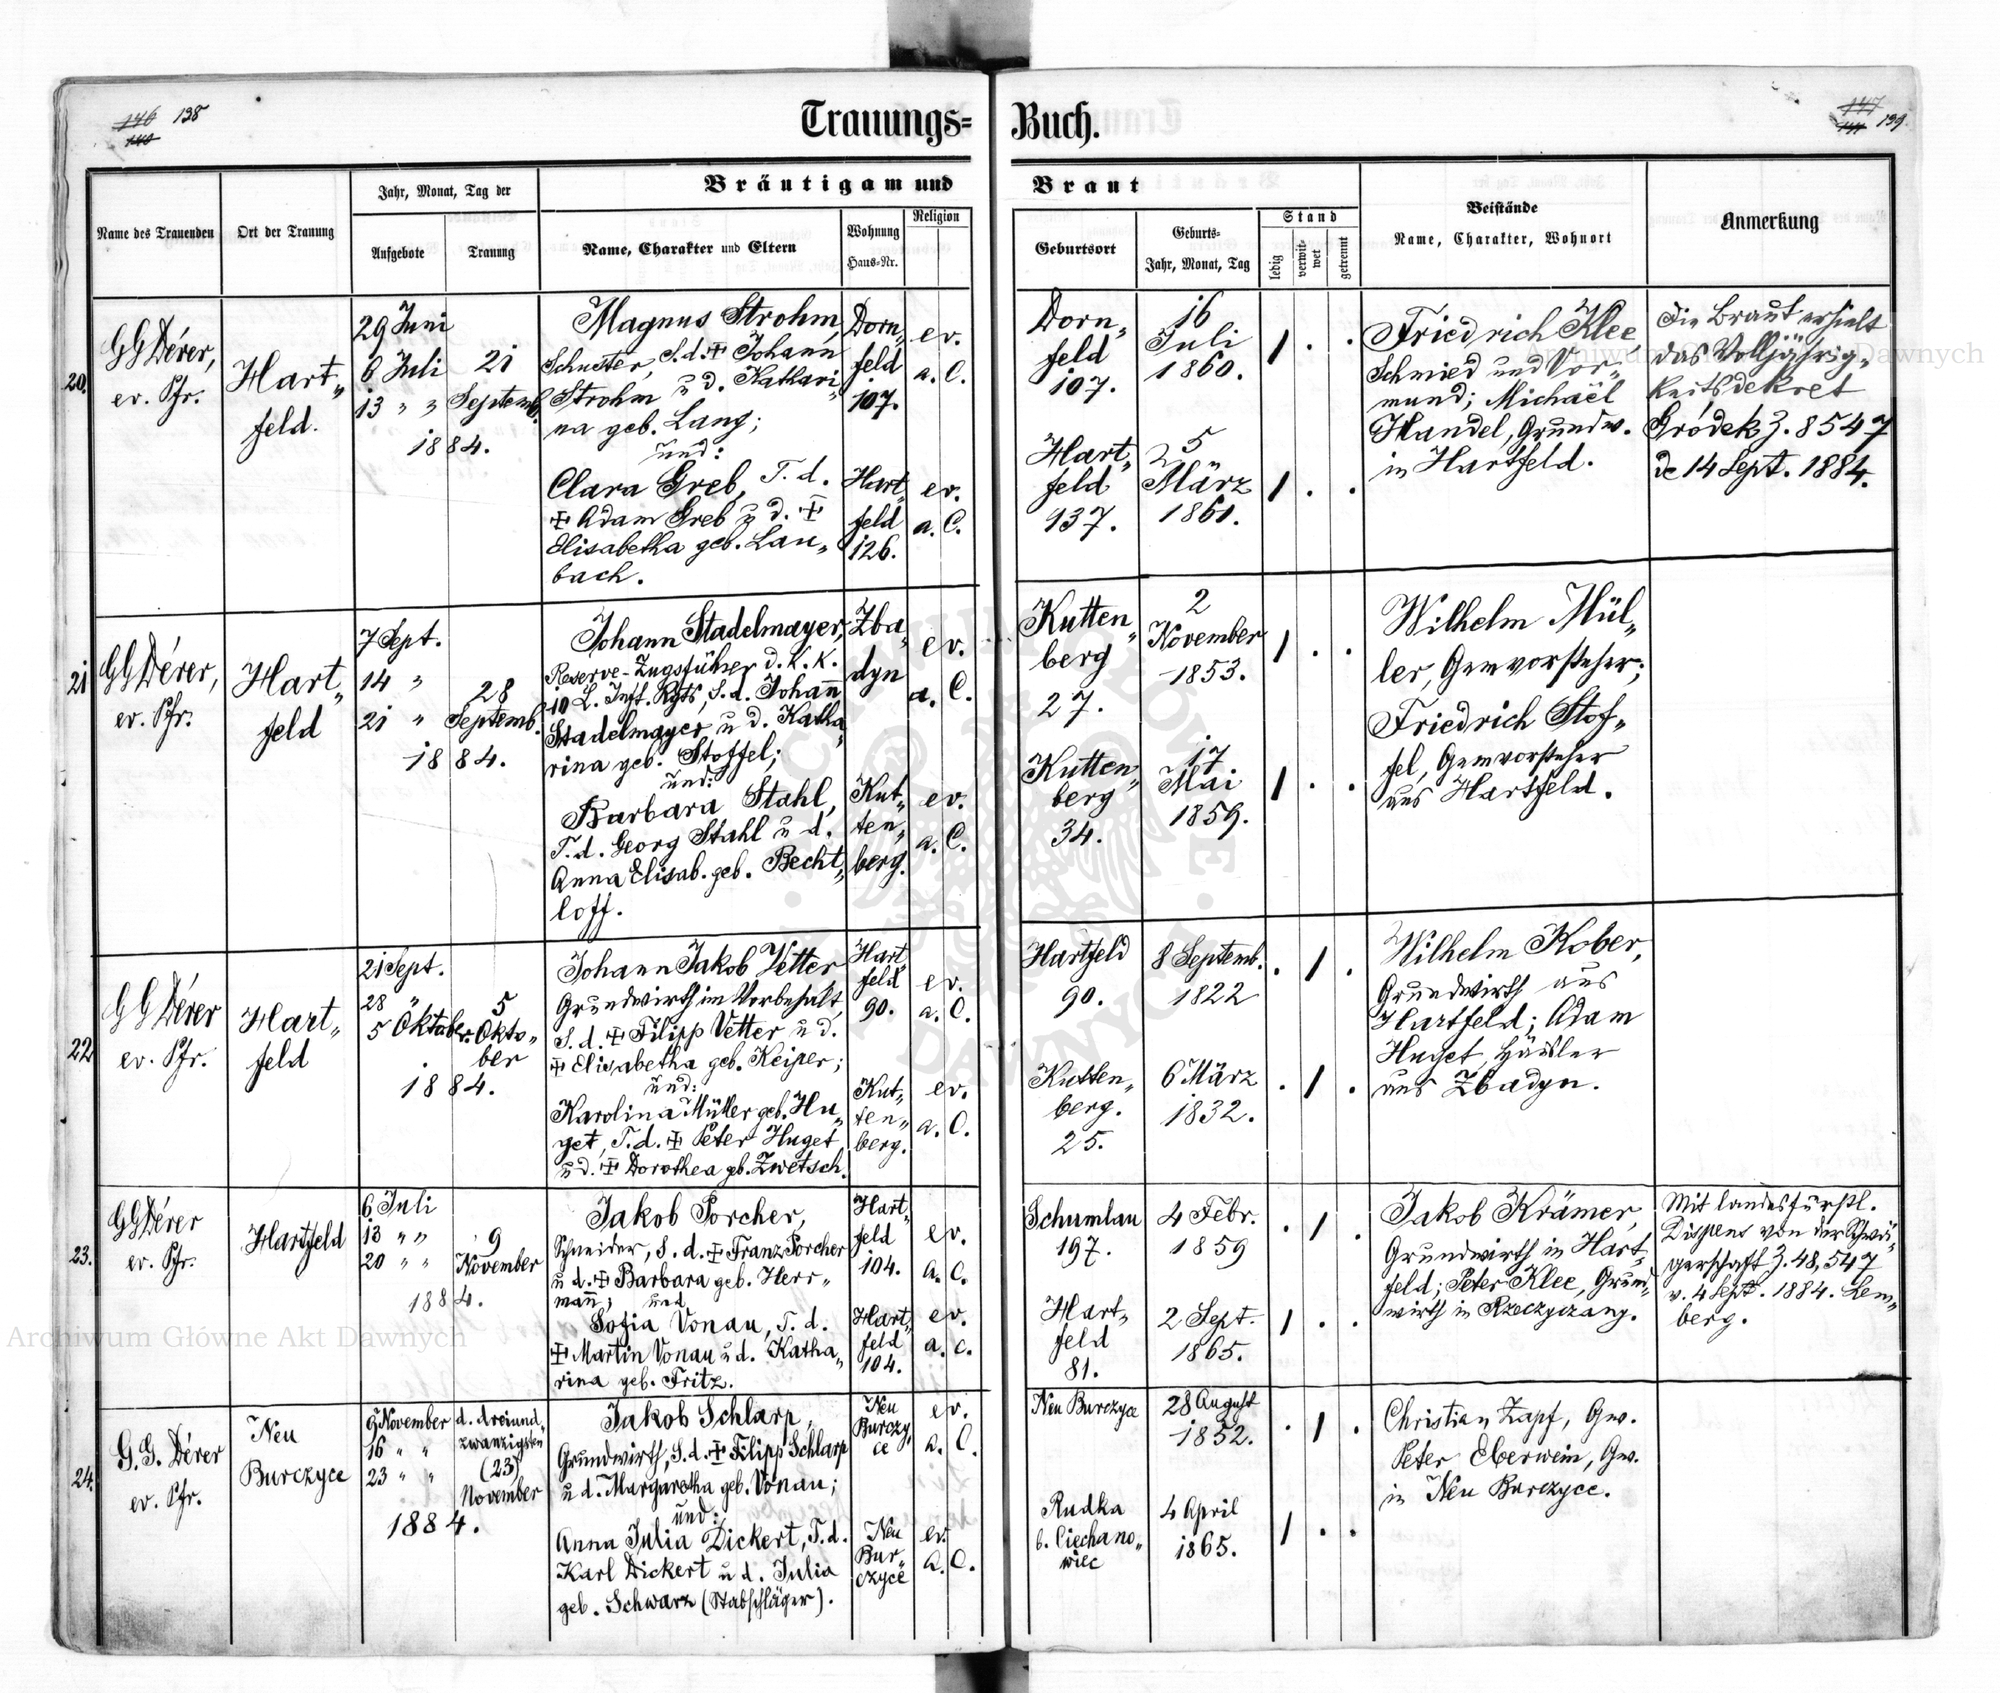 146 138
140
Trauungs= Buch.
147 139
141
Name des Trauenden
Ort der Trauung
Jahr, Monat, Tag der
Aufgebote
Trauung
Bräutigam und Braut
Name, Charakter und Eltern
Wohnung
Haus-Nr.
Religion
Geburtsort
Geburts-
Jahr, Monat, Tag
Stand
ledig
verwit-
wet
getrennt
Beistände
Name, Charakter, Wohnort
Anmerkung
20.
GGDérer,
ev. Pfr.
Hart„
feld.
29 Juni
6 Juli
13 " "
21
Septemb.
1884.
Magnus Strohm,
Schuster, S.d. ✠ Johann
Strohm u d. Kathari„
na geb. Lang;
und:
Clara Greb, T. d.
✠ Adam Greb u d. ✠
Elisabetha geb. Lau„
bach.
Dorn„
feld
107.
Hart„
feld
126.
ev.
a. C.
ev.
a. C.
Dorn„
feld
107.
Hart„
feld
137.
16
Juli
1860.
25
März
1861.
1 . .
1 . .
Friedrich Klee,
Schmied und Vor„
mund; Michaël
Handel, Grundw.
in Hartfeld.
Die Braut erhielt
das Volljährig„
keitsdekret
Gródek Z. 8547
de 14 Sept. 1884.
21
GGDérer,
ev. Pfr.
Hart„
feld
7 Sept.
14 "
21 "
28
Septemb.
1884.
Johann Stadelmayer,
Reserve-Zugsführer d. K. K.
10 L. Inft. Rgts, S. d. Johann
Stadelmayer u d. Katha„
rina geb. Stoffel;
und:
Barbara Stahl,
T. d. Georg Stahl u d.
Anna Elisab. geb. Becht„
loff.
Zba„
dyn
Kut„
ten„
berg.
ev.
a. C.
ev.
a. C.
Kutten„
berg
27.
Kutten„
berg
34.
2
November
1853.
17
Mai
1859.
1 . .
1 . .
Wilhelm Mül„
ler, Gemvorsteher;
Friedrich Stof„
fel, Gemvorsteher
aus Hartfeld.
22
GGDérer
ev. Pfr.
Hart„
feld
21 Sept.
28 "
5 Oktober.
5
Okto„
ber
1884.
Johann Jakob Vetter
Grundwirth im Vorbehalt,
S. d. ✠ Filipp Vetter u d.
✠ Elisabetha geb. Keiper;
und:
Karolina Müller geb. Hu„
get, T. d. ✠ Peter Huget
u d. ✠ Dorothea gb. Zwetsch.
Hart
feld
90.
Kut„
ten„
berg.
ev.
a. C.
ev.
a. C.
Hartfeld
90.
Kutten„
berg.
25.
8 Septemb.
1822
6 März
1832.
. 1 .
. 1 .
Wilhelm Kober,
Grundwirth aus
Hartfeld; Adam
Huget, Häusler
aus Zbadyn.
23.
GGDérer
ev. Pfr.
Hartfeld
6 Juli
13 " "
20 " "
9
November
1884.
Jakob Porcher,
Schneider, S. d. ✠ Franz Porcher
u d. ✠ Barbara geb. Herr„
mann; und
Sofia Vonau, T. d.
✠ Martin Vonau u d. Katha„
rina geb. Fritz.
Hart„
feld
104.
Hart„
feld
104.
ev.
a. C.
ev.
a. C.
Schumlau
197.
Hart„
feld
81.
4 Febr.
1859
2 Sept.
1865.
. 1 .
1 . .
Jakob Krämer,
Grundwirth in Hart„
feld; Peter Klee, Grund„
wirth in Rzeczyczany.
Mit landesfürstl.
Dispens von der Schwä„
gerschaft Z. 48,547
v. 4 Sept. 1884. Lem„
berg.
24.
G. G. Dérer
ev. Pfr.
Neu
Burczyce
9 November
16 " "
23 " "
d. dreiund„
zwanzigsten
(23)
November
1884.
Jakob Schlarp,
Grundwirth, S. d. ✠ Filipp Schlarp
u d. Margaretha geb. Vonau;
und:
Anna Julia Dickert, T. d.
Karl Dickert u d. Julia
geb. Schwarz (Stabschläger).
Neu
Burczy„
ce
Neu
Bur„
czyce
ev.
a. C.
ev.
a. C.
Neu Burczyce
Rudka
b. Ciechano„
wiec
28 August
1852.
4 April
1865.
. 1 .
1 . .
Christian Zapf, Gw.
Peter Eberwein, Gw.
in Neu Burczyce.
Archiwum Główne Akt Dawnych
Archiwum Główne Akt Dawnych